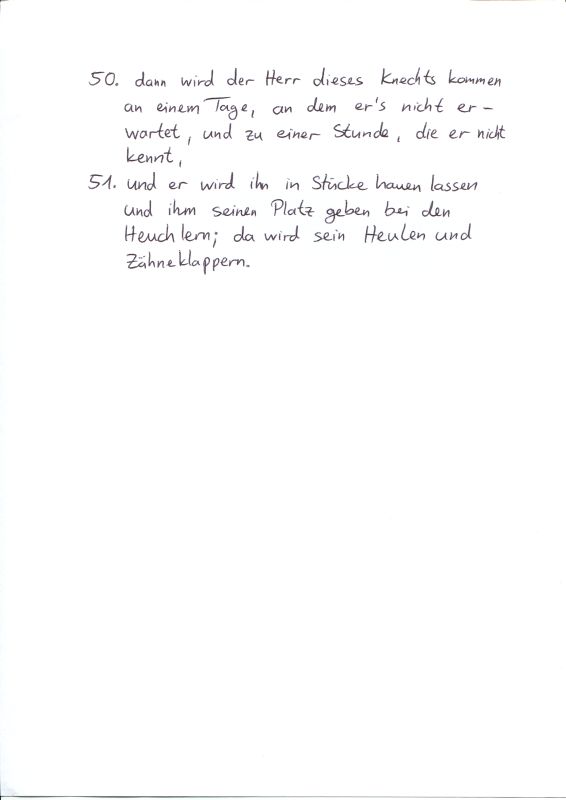 50. dann wird der Herr dieses Knechts kommen
an einem Tage, an dem er's nicht er-
wartet, und zu einer Stunde, die er nicht
kennt,
51. und er wird ihn in Stücke hauen lassen
und ihm seinen Platz geben bei den
Heuchlern; da wird sein Heulen und
Zähneklappern.